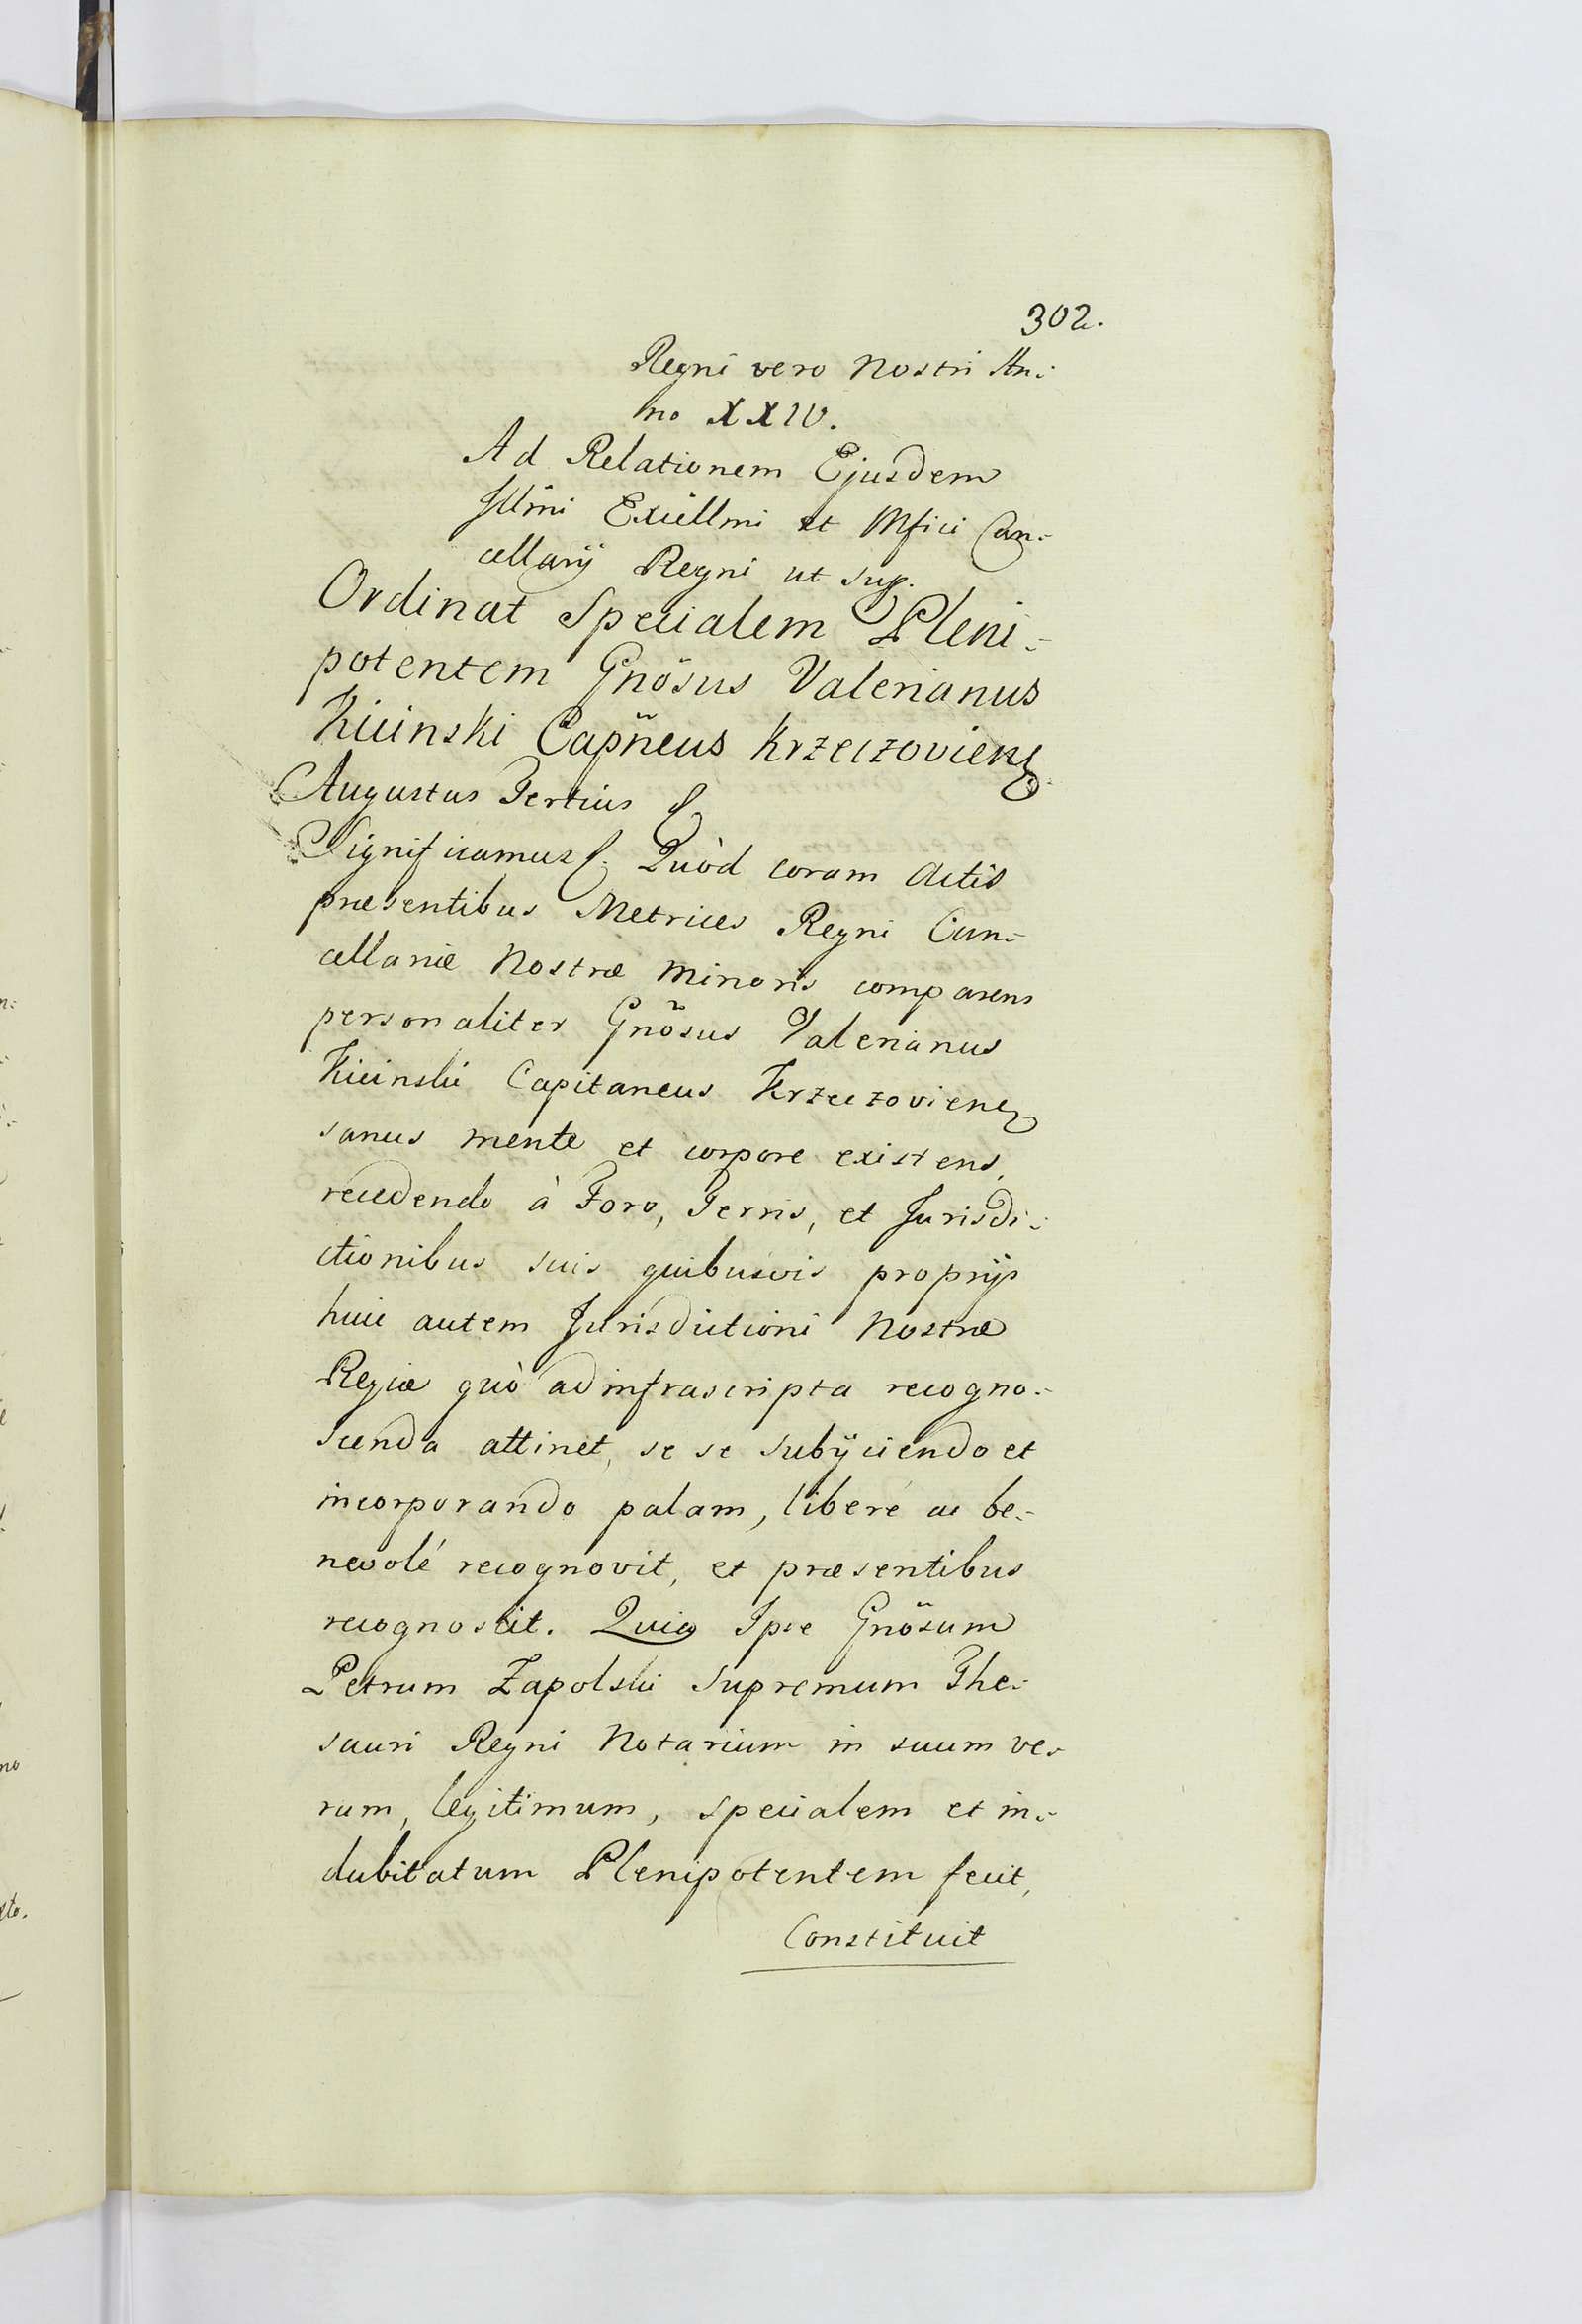 302.
Regni vero Nostri An:
no XXIV.
Ad Relationem Ejusdem
Illmi Excellmi et Mfici Can:
cellarij Regni ut sup.
Ordinat Specialem Pleni:
potentem Gnosus Valerianus
Kicinski Capñeus Krzeczoviens
Augustus Tertius &
Significamus &. Quòd coram Actis
præsentibus Metrices Regni Can:
cellariæ Nostræ Minoris comparens
personaliter Gnõsus Valerianus
Kicinski Capitaneus Krzeczoviens
sanus mente et corpore existens,
recedendo à Foro, Terris, et Jurisdi:
ctionibus suis quibusvis proprijs
huic autem Jurisdictioni Nostræ
Regiæ quò ad infrascripta recogno:
scenda attinet, se se subijciendo et
incorporando palam, liberé ac be:
nevolé recognovit, et præsentibus
recognoscit. Quia Ipse Gnõsum
Petrum Zapolski Supremum The:
sauri Regni Notarium in suum ve:
rum, legitimum, specialem et in:
dubitatum Plenipotentem fecit,
Constituit